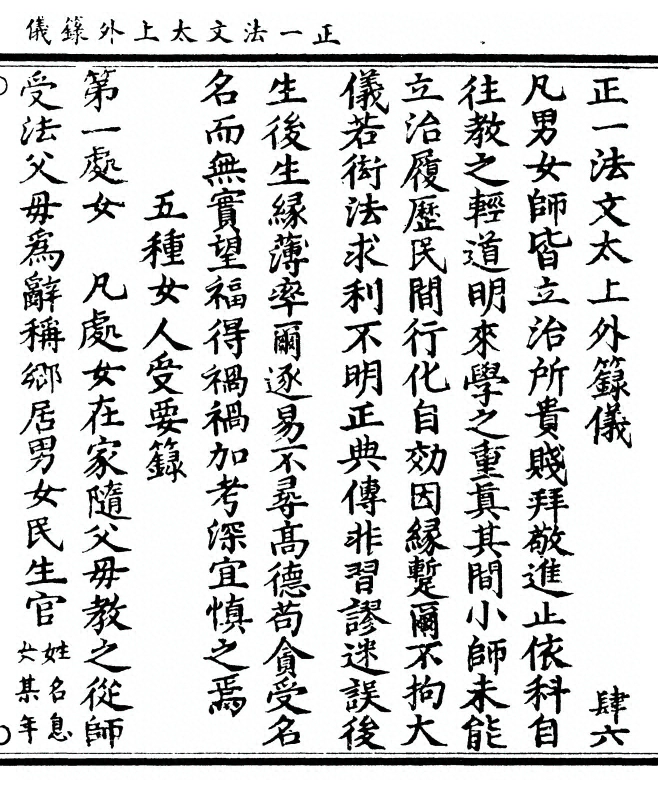 正一法文太上外籙儀
正一法文太上外籙儀 肆六
凡男女師皆立治所貴賤拜敬進止依科自
往教之輕道明來學之重真其間小師未能
立治履歷民間行化自効因緣蹔爾不拘大
儀若衒法求利不明正典傳非習謬迷誤後
生後生緣薄率爾逐易不尋高德苟貪受名
名而無實望福得禍禍加考深宜慎之焉
五種女人受要籙
第一處女 凡處女在家隨父母教之從師
受法父母為辭稱鄉居男女民生官姓名息女某年